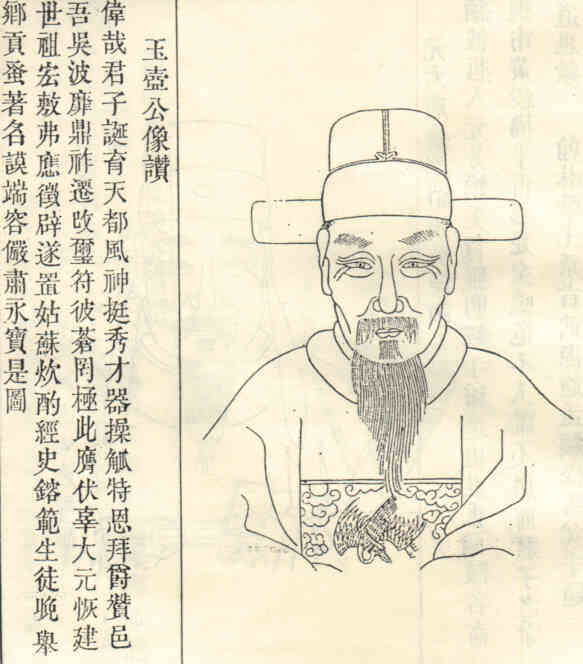 玉壺公像讚
偉哉君子誕育天都風神挺秀才器操觚特恩拜爵贊邑
吾吳波靡鼎祚遷攺璽符彼蒼罔極此膺伏辜大元恢建
世祖宏敷弗應徵辟遂置姑蘇炊酌經史鎔範生徒晚舉
鄉貢蚤著名謨端容儼肅永寶是圖